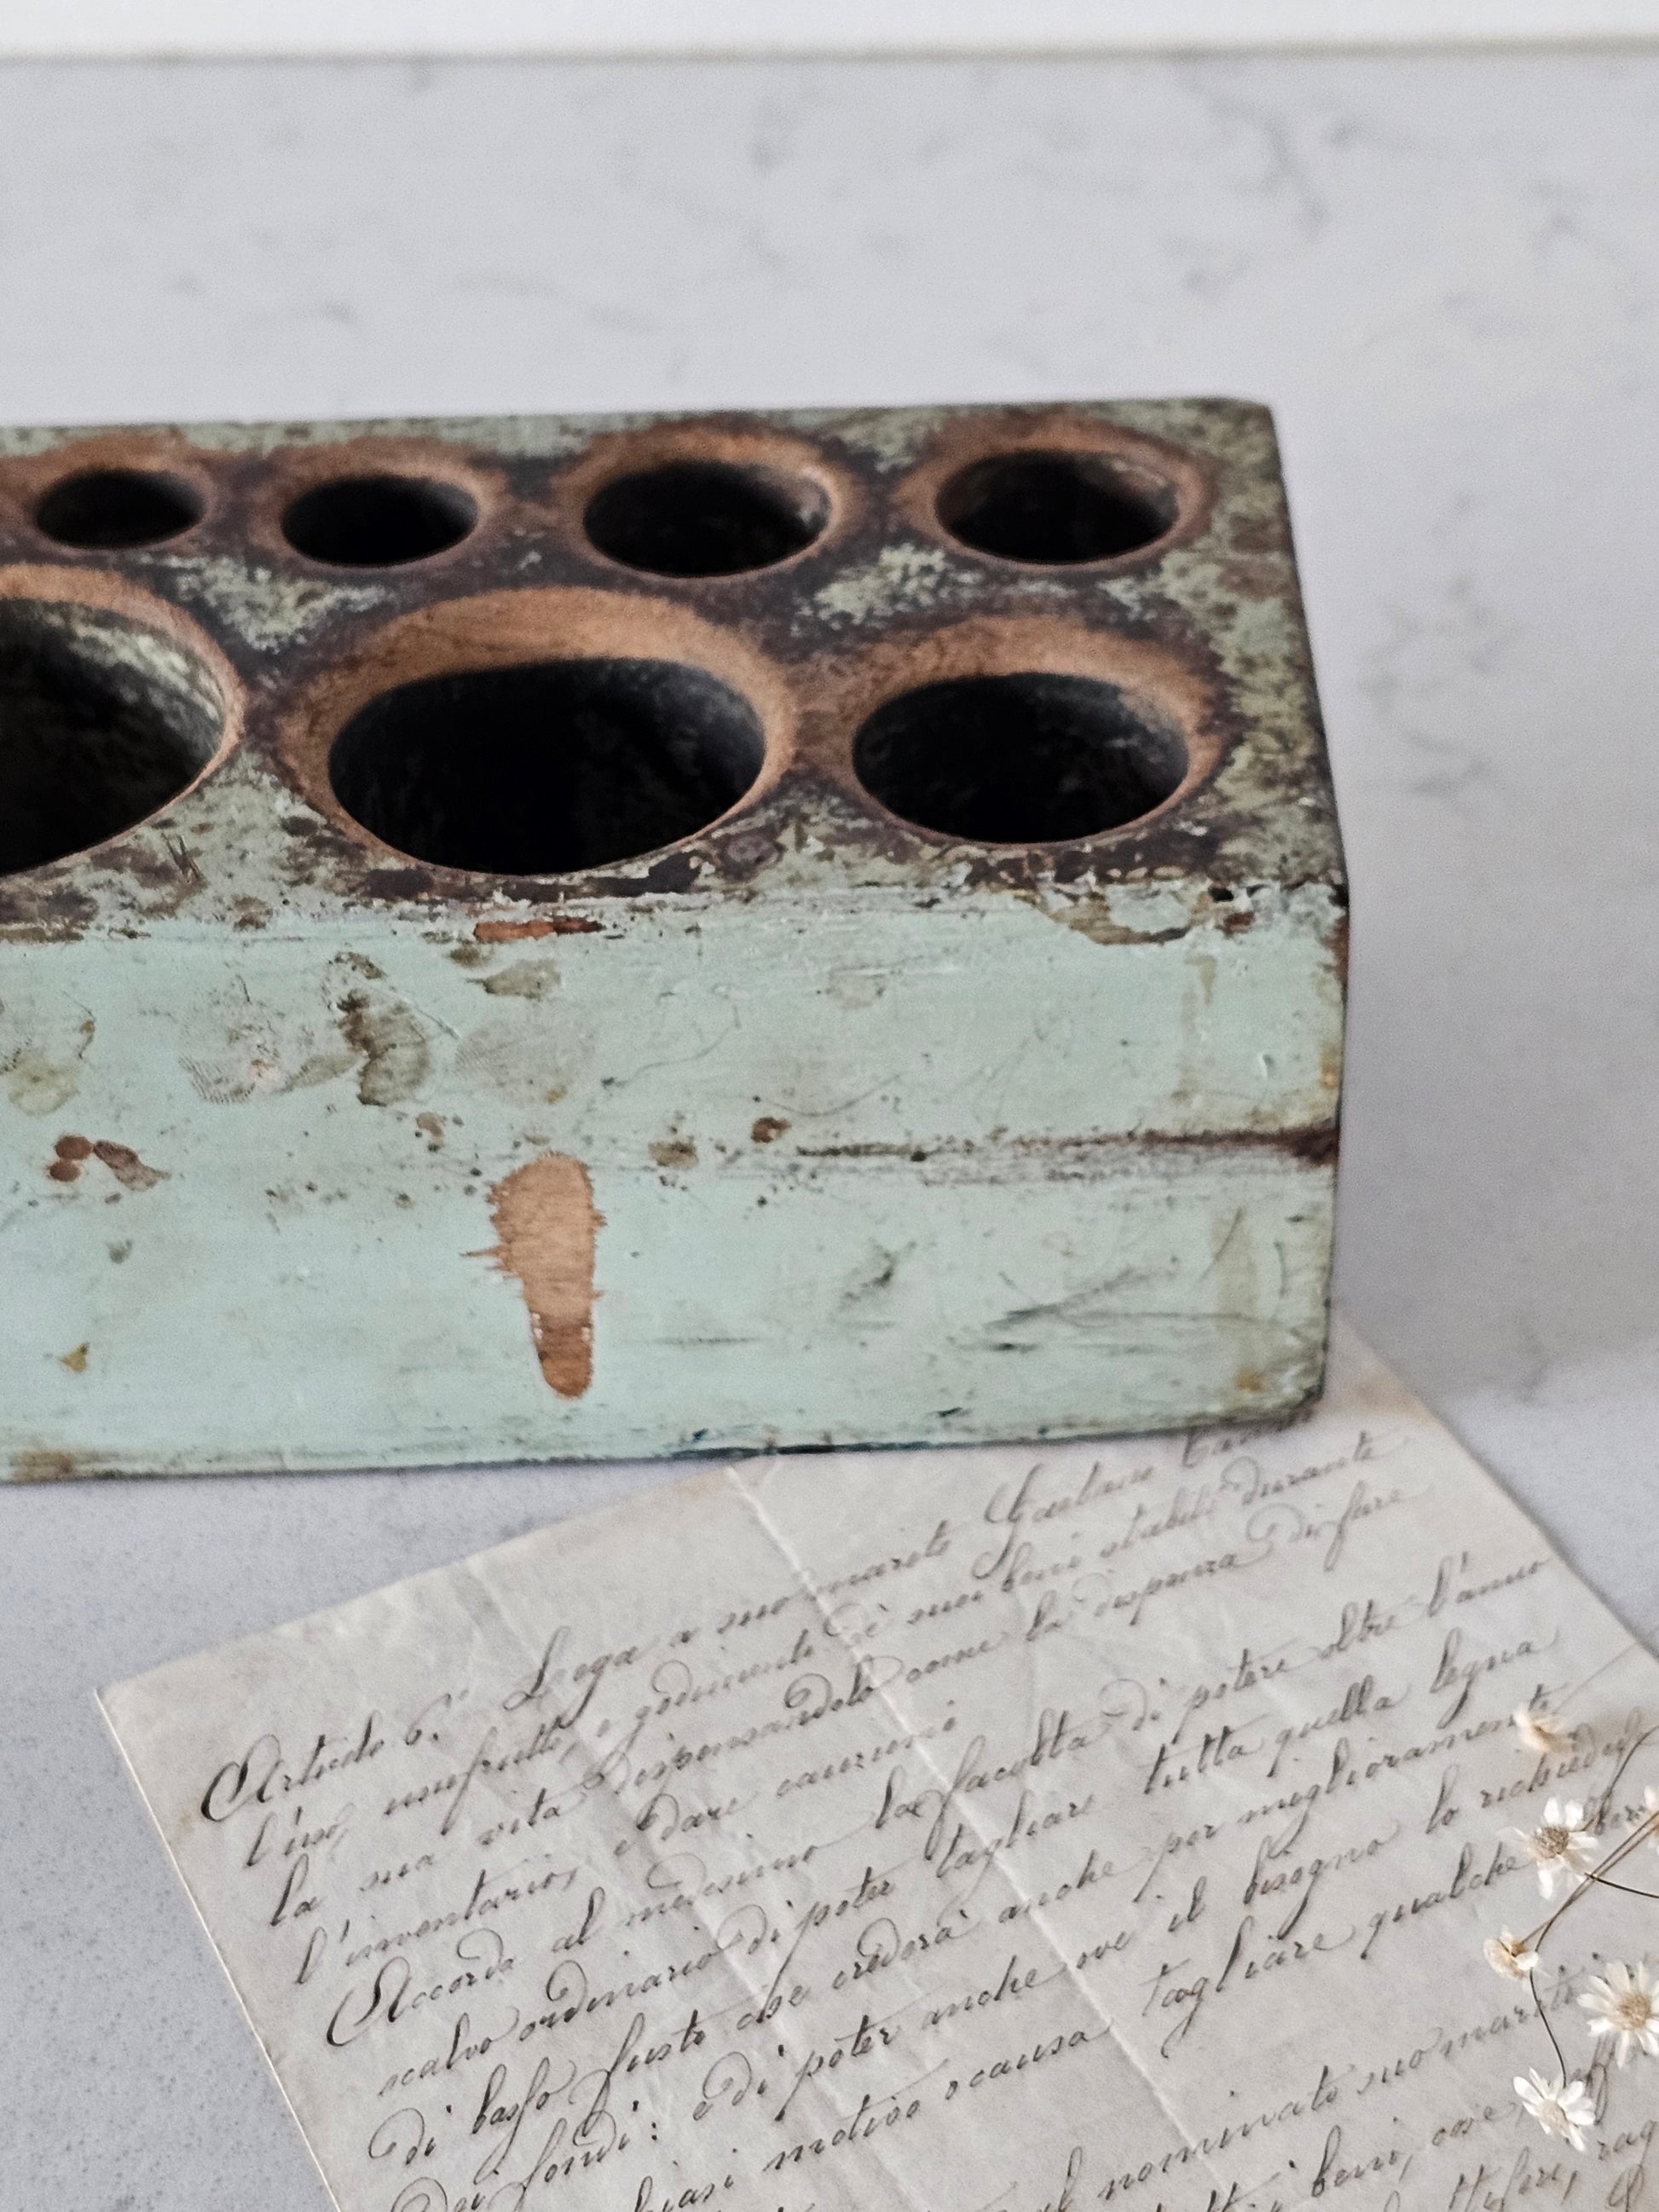 Articolo 6.° Lega a suo marito Gaetano
l'uso, usufrutto, e godimento de suoi beni stabili durante
la sua vita dispensandolo come lo dispensa di fare
l'inventario, e dare cauzione
Accorda al medesimo la facoltà di potere oltre l'anno
scalvo ordinario di poter tagliare tutta quella legna
di basso fusto che crederà anche per miglioramento
dei fondi: e di poter anche ove il bisogno lo richiedesse
motivo o causa tagliare qualche
nominato suo marito
beni, case,